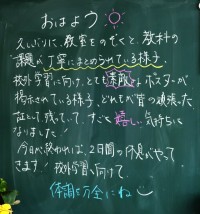 おはよう
久しぶりに、教室をのぞくと、教科の
課題が丁寧にまとめられている様子、
校外学習に向け、とても素敵なポスターが
掲示されている様子、どれもが皆の頑張った
証として残っていて、すごく嬉しい気持ちに
なりました!
今日が終われば、2日間の休みがやって
きます! 校外学習に向けて、
体調を万全にね